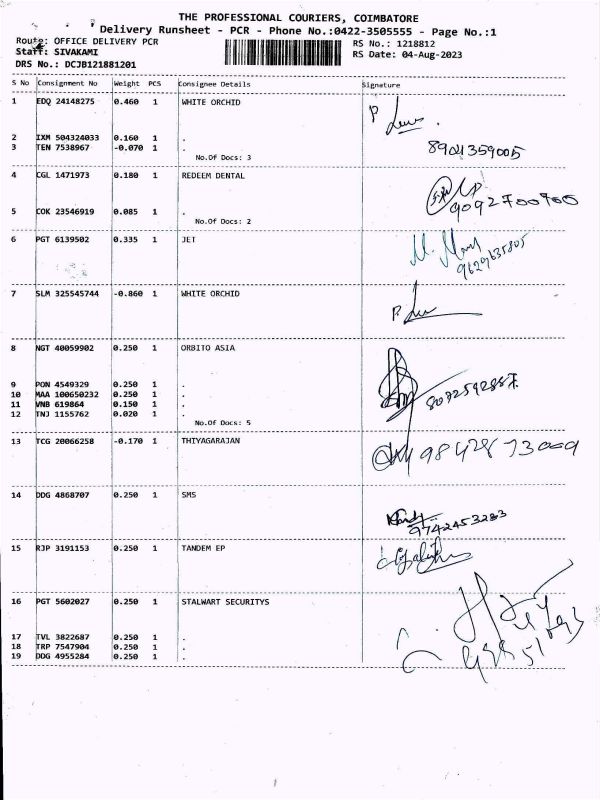 THE PROFESSIONAL COURIERS, COIMBATORE
Delivery Runsheet - PCR - Phone No.:0422-3505555 - Page No.:1
Route: OFFICE DELIVERY PCR RS No.: 1218812
Staff: SIVAKAMI RS Date: 04-Aug-2023
DRS No.: DCJB121881201
S No Consignment No Weight PCS Consignee Details Signature
1 EDQ 24148275 0.460 1 WHITE ORCHID
2 IXM 504324033 0.160 1 .
3 TEN 7538967 -0.070 1 .
8904359005
No.Of Docs: 3
4 CGL 1471973 0.180 1 REDEEM DENTAL
9092700700
5 COK 23546919 0.085 1 .
No.Of Docs: 2
6 PGT 6139502 0.335 1 JET
9629635805
7 SLM 325545744 -0.860 1 WHITE ORCHID
8 NGT 40059902 0.250 1 ORBITO ASIA
9 PON 4549329 0.250 1 .
10 MAA 100650232 0.250 1 .
11 VNB 619864 0.150 1 .
12 TNJ 1155762 0.020 1 .
No.Of Docs: 5
13 TCG 20066258 -0.170 1 THIYAGARAJAN
9842873009
14 DDG 4868707 0.250 1 SMS
9742453283
15 RJP 3191153 0.250 1 TANDEM EP
16 PGT 5602027 0.250 1 STALWART SECURITYS
17 TVL 3822687 0.250 1 .
18 TRP 7547904 0.250 1 .
19 DDG 4955284 0.250 1 .